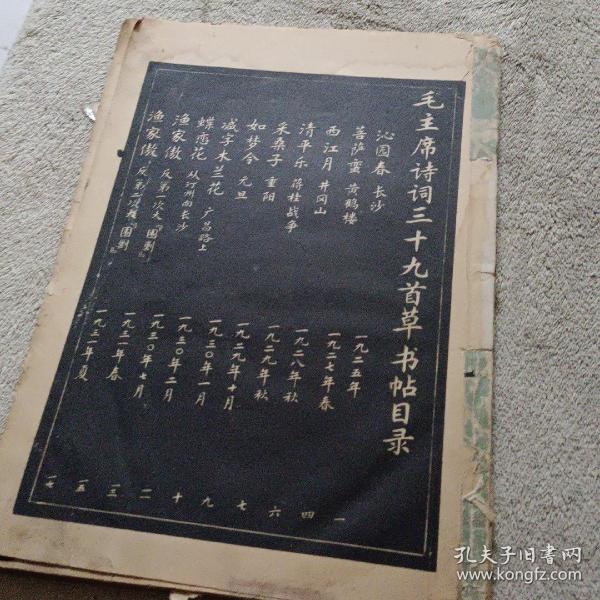 毛主席诗词三十九首草书帖目录
沁园春 长沙 一九二五年 一
菩萨蛮 黄鹤楼 一九二七年春 四
西江月 井冈山 一九二八年秋 六
清平乐 蒋桂战争 一九二九年秋 七
采桑子 重阳 一九二九年十月 九
如梦令 元旦 一九三〇年一月 十
减字木兰花 广昌路上 一九三〇年二月 一二
蝶恋花 从汀州向长沙 一九三〇年七月 一三
渔家傲 反第一次大“围剿” 一九三一年春 一五
渔家傲 反第二次大“围剿” 一九三一年夏 一七
孔夫子旧书网
www.kongfz.com